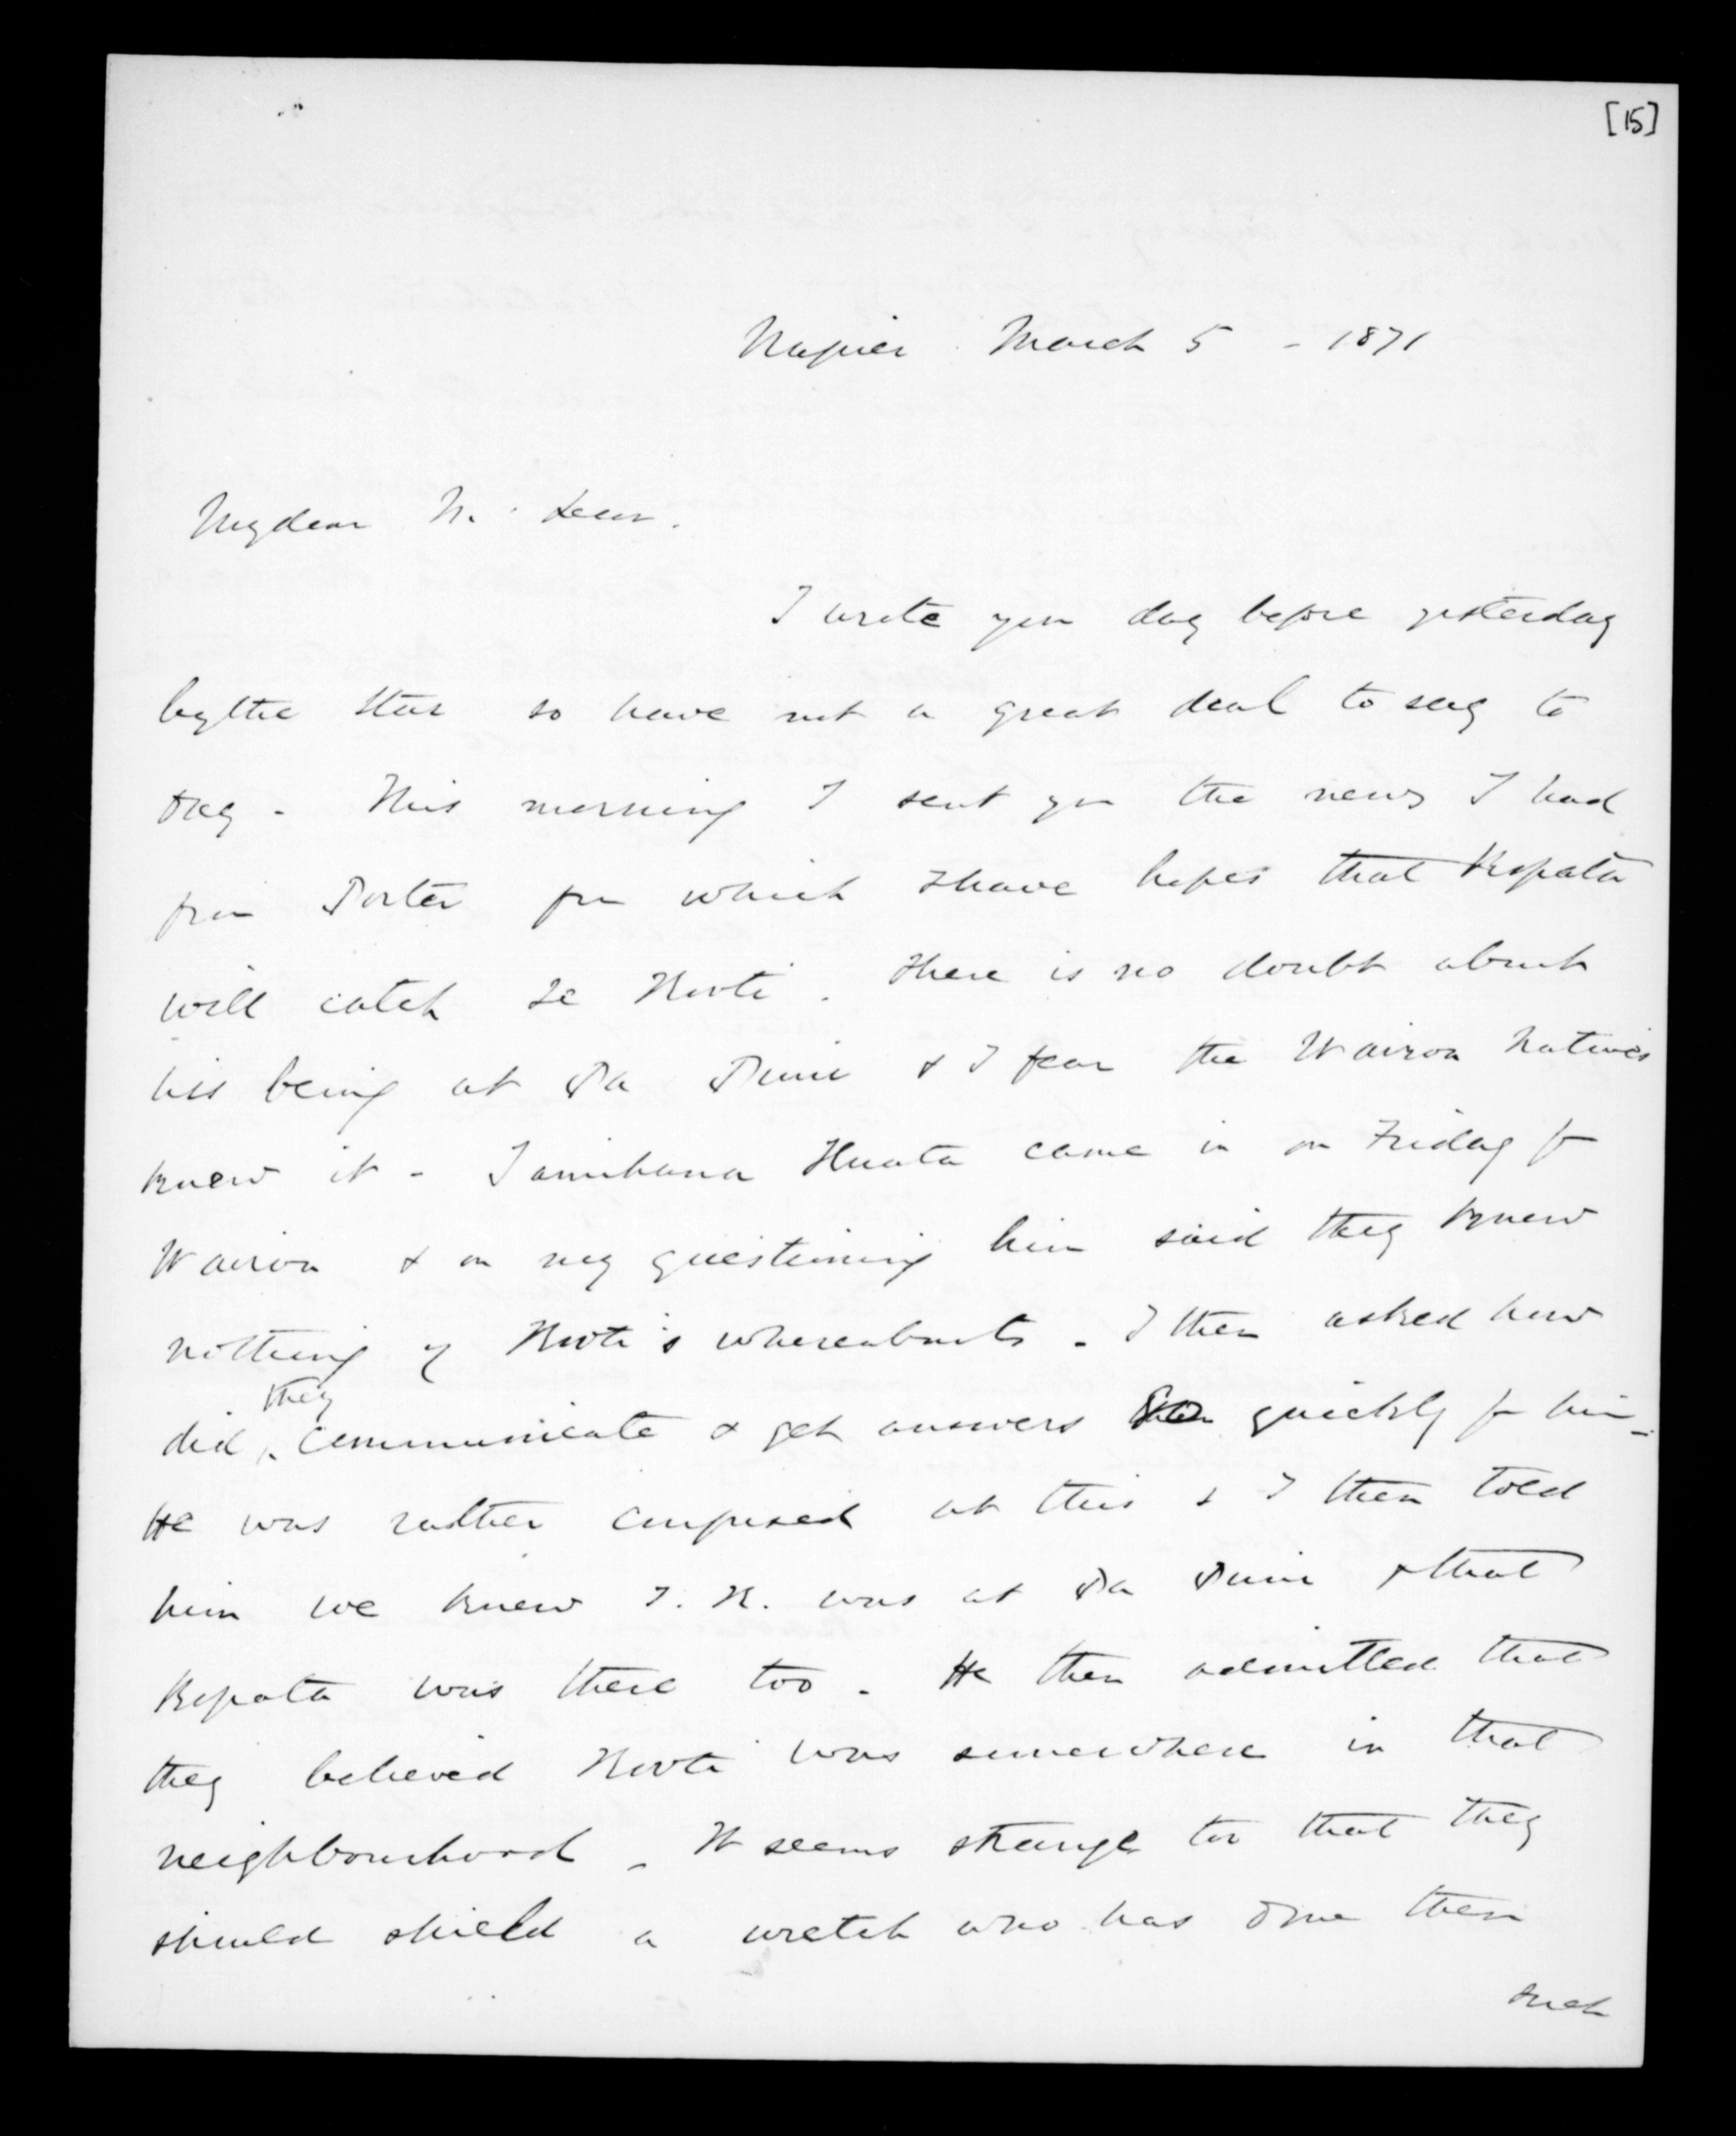 [15]
Napier March 5 - 1871
My dear McLean.
I wrote you day before yesterday
by the Star so have not a great deal to say to
day - This morning I sent you the news I had
from Porter from which I have hopes that Ropata
will catch Te Kooti. There is no doubt about
his being at Pa Puni & I fear the Wairoa Natives
knew it - Tamihana Huata came in on Friday fm
Wairoa & on my questioning him said they knew
nothing of Kooti's whereabouts - I then asked how
did they communicate & get answers so quickly fm him -
He was rather confused at this & I then told
him we knew T.K. was at Pa Puni & that
Ropata was there too - He then admitted that
they believed Kooti was somewhere in that
neighbourhood - It seems strange too that they
should shield a wretch who has done them
such